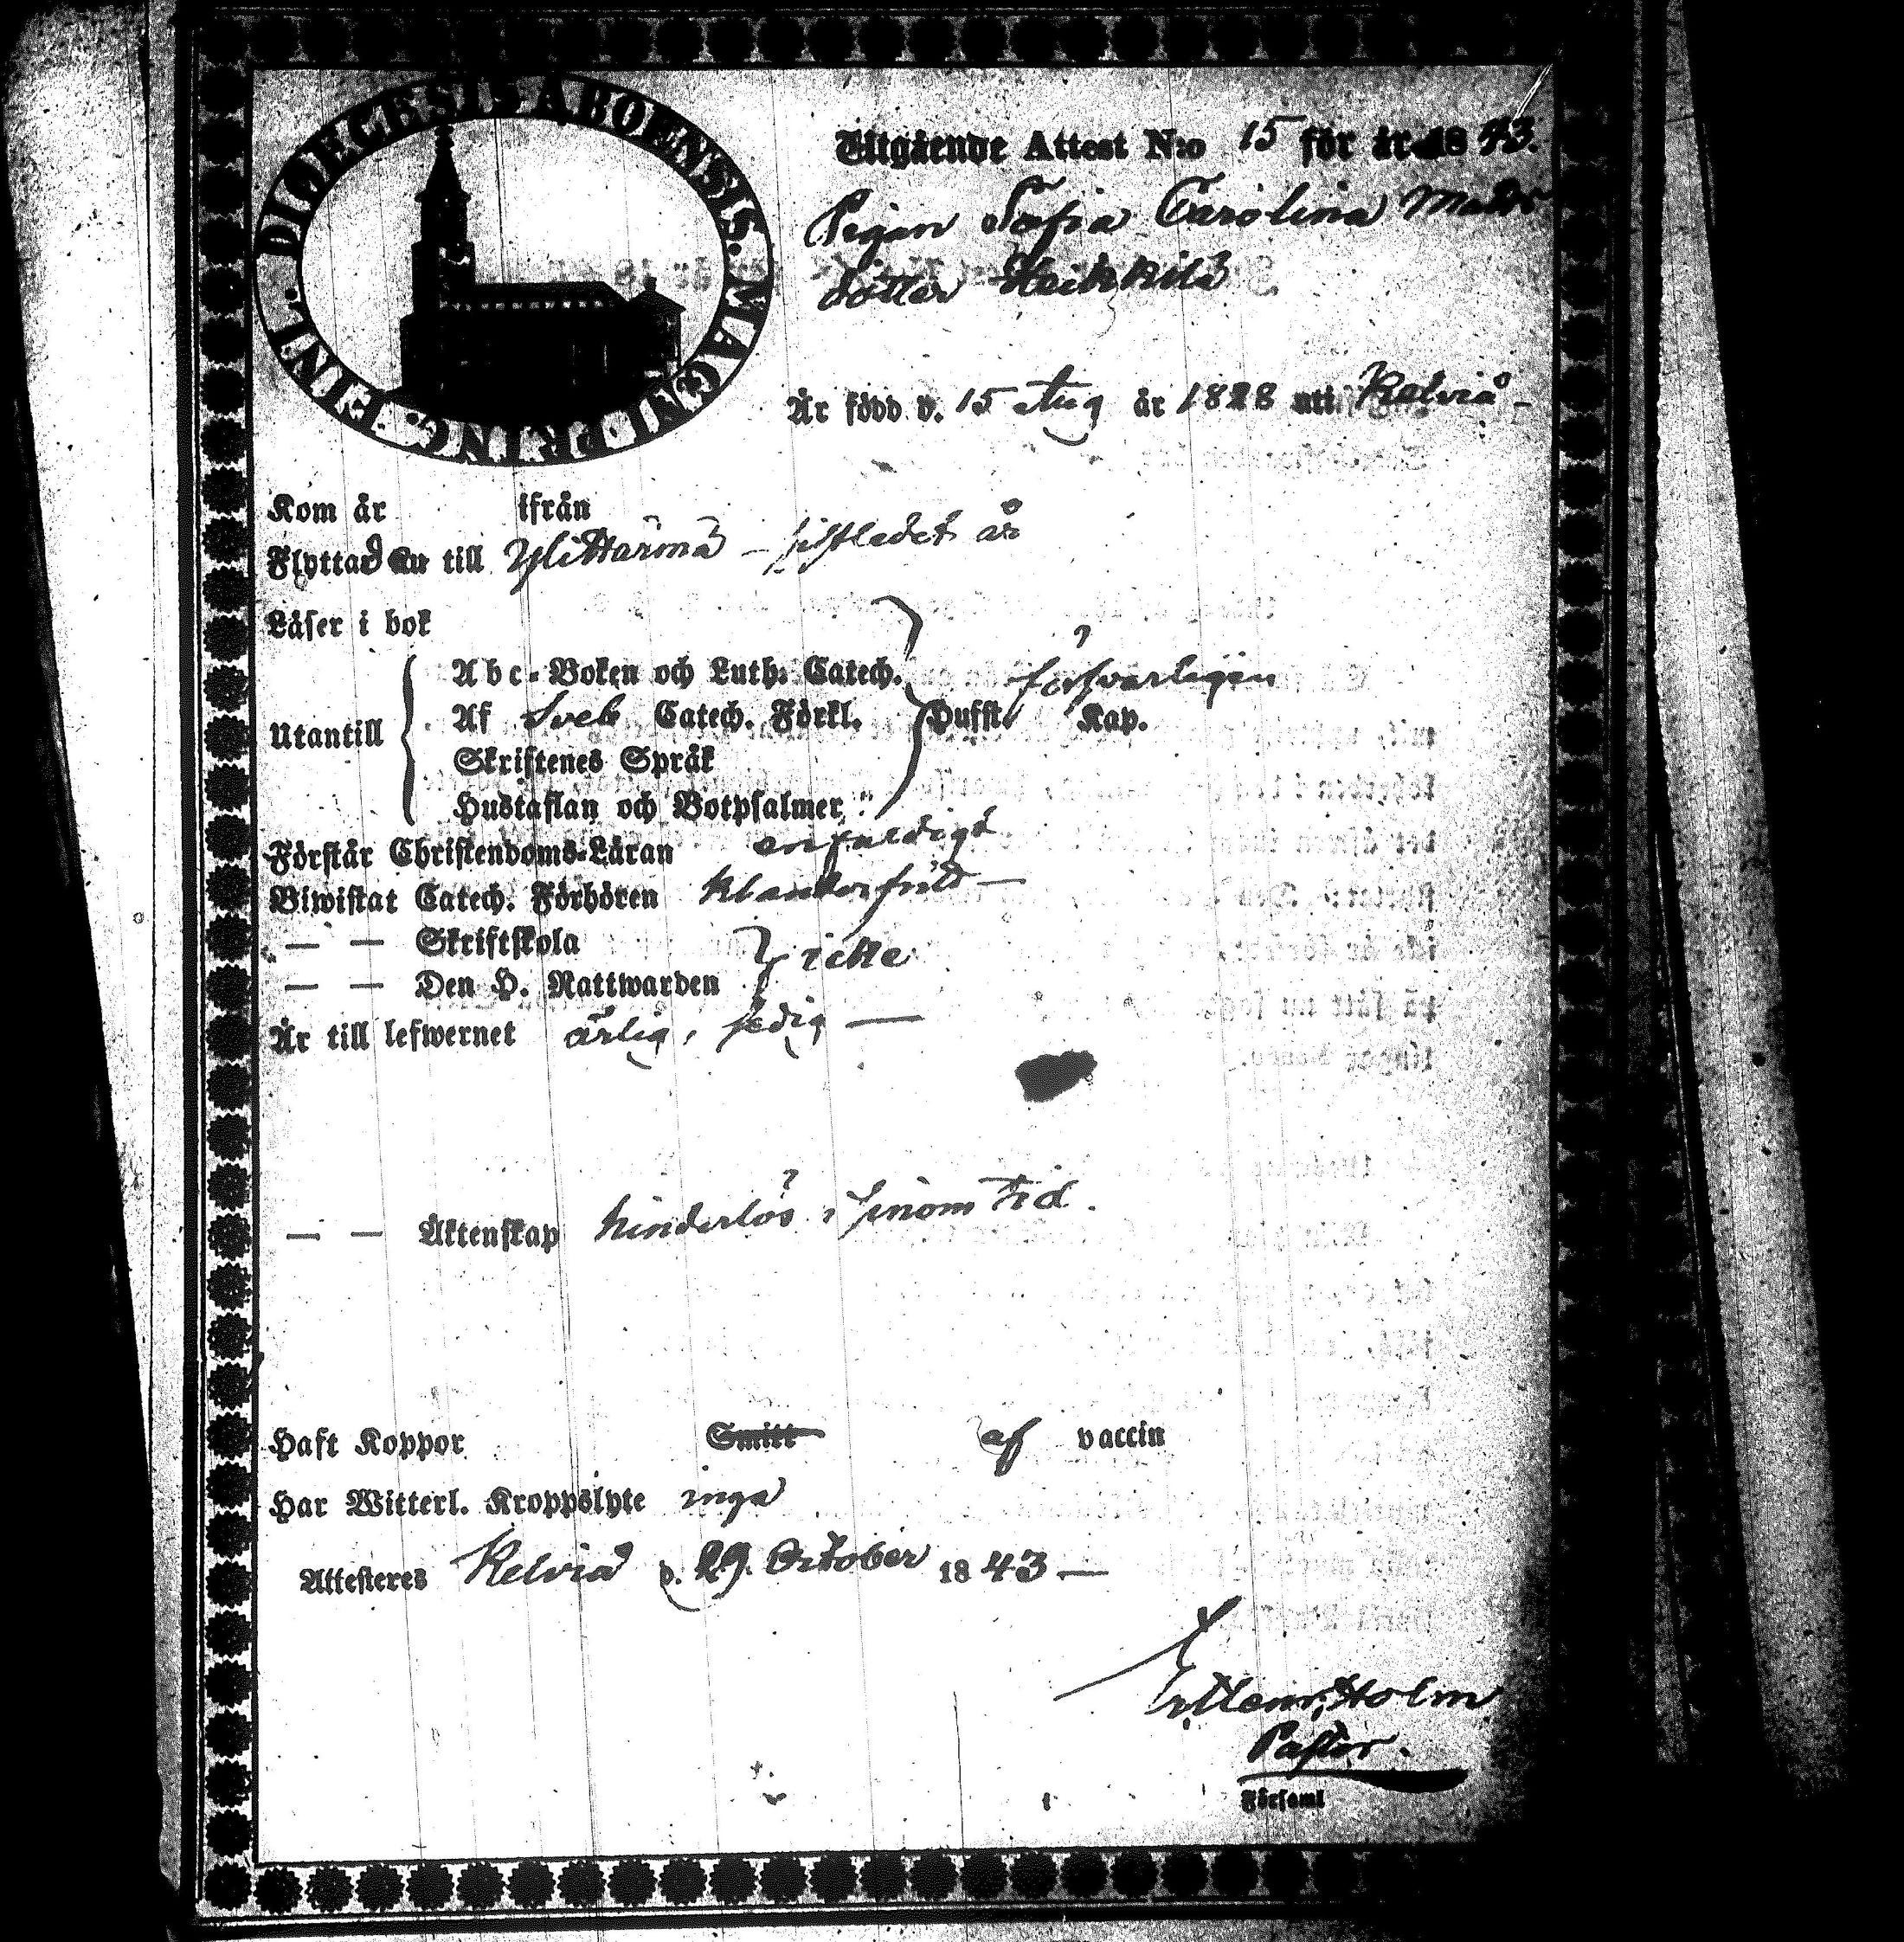 DIOECESIS ABOENSIS. MAGNI PRINC. FINL.
Utgående Attest N:o 15 för år 1843.
Pigan Sofia Carolina Matts
dotter Heikkilä
Är född d. 15 Aug år 1828 uti Kelviå -
Kom år ifrån
Flyttad till Ylihärmä - sistledet år
Läser i bok
Utantill
Abc-Boken och Luth. Catech.
försvarligen
Af Sveb Catech. Förkl.
Huffst. Kap.
Skriftenes Språk
Hustaflan och Botpsalmer
Förstår Christendoms-Läran enfaldigt
Biwistat Catech. Förhören klanderfritt —
— — Skriftskola
icke
— — Den H. Nattwarden
Är till lefwernet ärlig, sedig —
— — Äktenskap hinderlös i sinom tid.
Haft Koppor Smitt af vaccin
Har Witterl. Kroppslyte inga
Attesteres Kelviå d. 29 October 1843 —
Holm
Pastor.
Församl